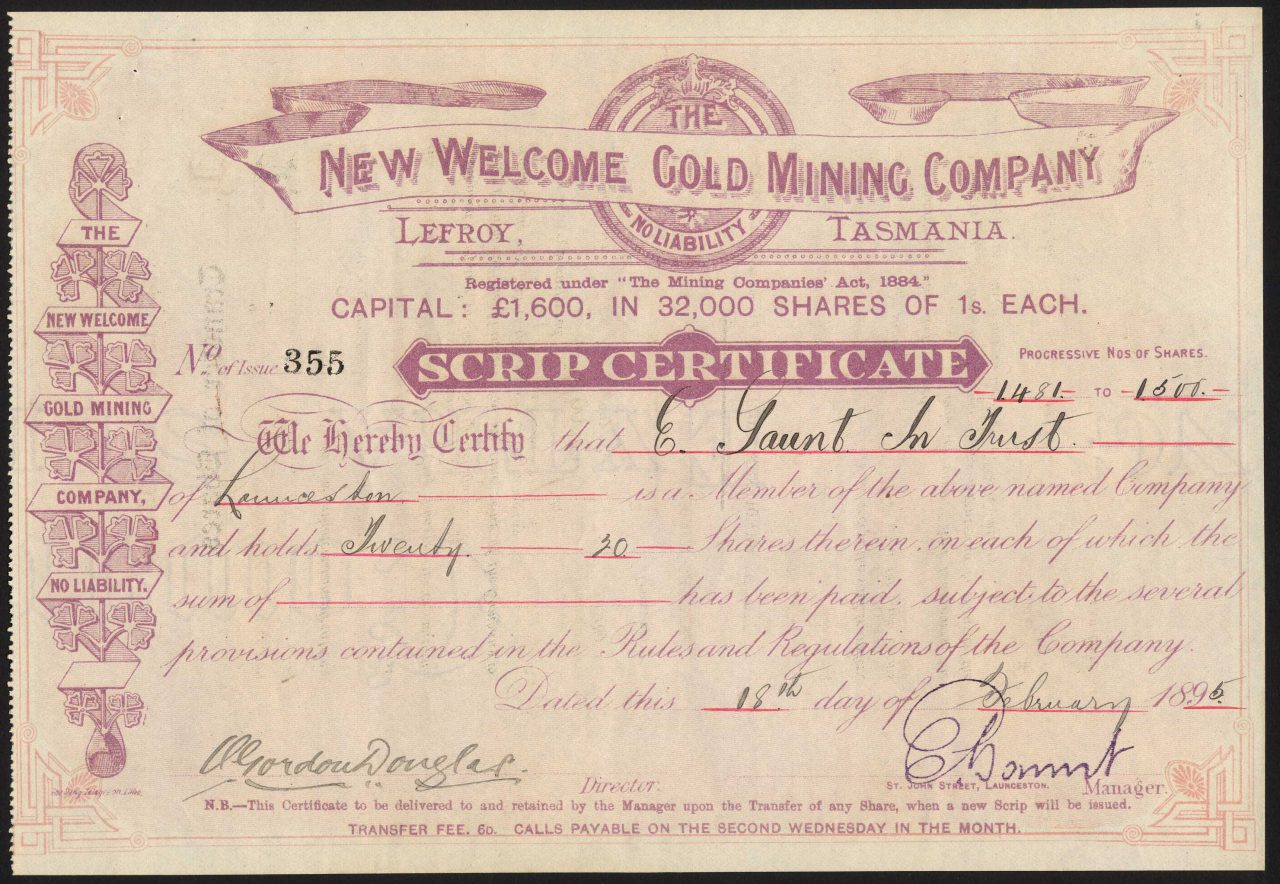 THE
NEW WELCOME GOLD MINING COMPANY
NO LIABILITY
LEFROY, TASMANIA.
Registered under "The Mining Companies' Act, 1884."
CAPITAL: £1,600, IN 32,000 SHARES OF 1s. EACH.
No of Issue 355
SCRIP CERTIFICATE
PROGRESSIVE NOS OF SHARES.
1481 TO 1500
We Hereby Certify that E. Gaunt In Trust
of Launceston is a Member of the above named Company
and holds Twenty 20 Shares therein, on each of which the
sum of has been paid, subject to the several
provisions contained in the Rules and Regulations of the Company.
Dated this 18th day of February 1895
Gordon Douglas
Director.
E Gaunt
ST. JOHN STREET, LAUNCESTON. Manager.
N.B.—This Certificate to be delivered to and retained by the Manager upon the Transfer of any Share, when a new Scrip will be issued.
TRANSFER FEE, 6D. CALLS PAYABLE ON THE SECOND WEDNESDAY IN THE MONTH.
THE
NEW WELCOME
GOLD MINING
COMPANY,
NO LIABILITY.